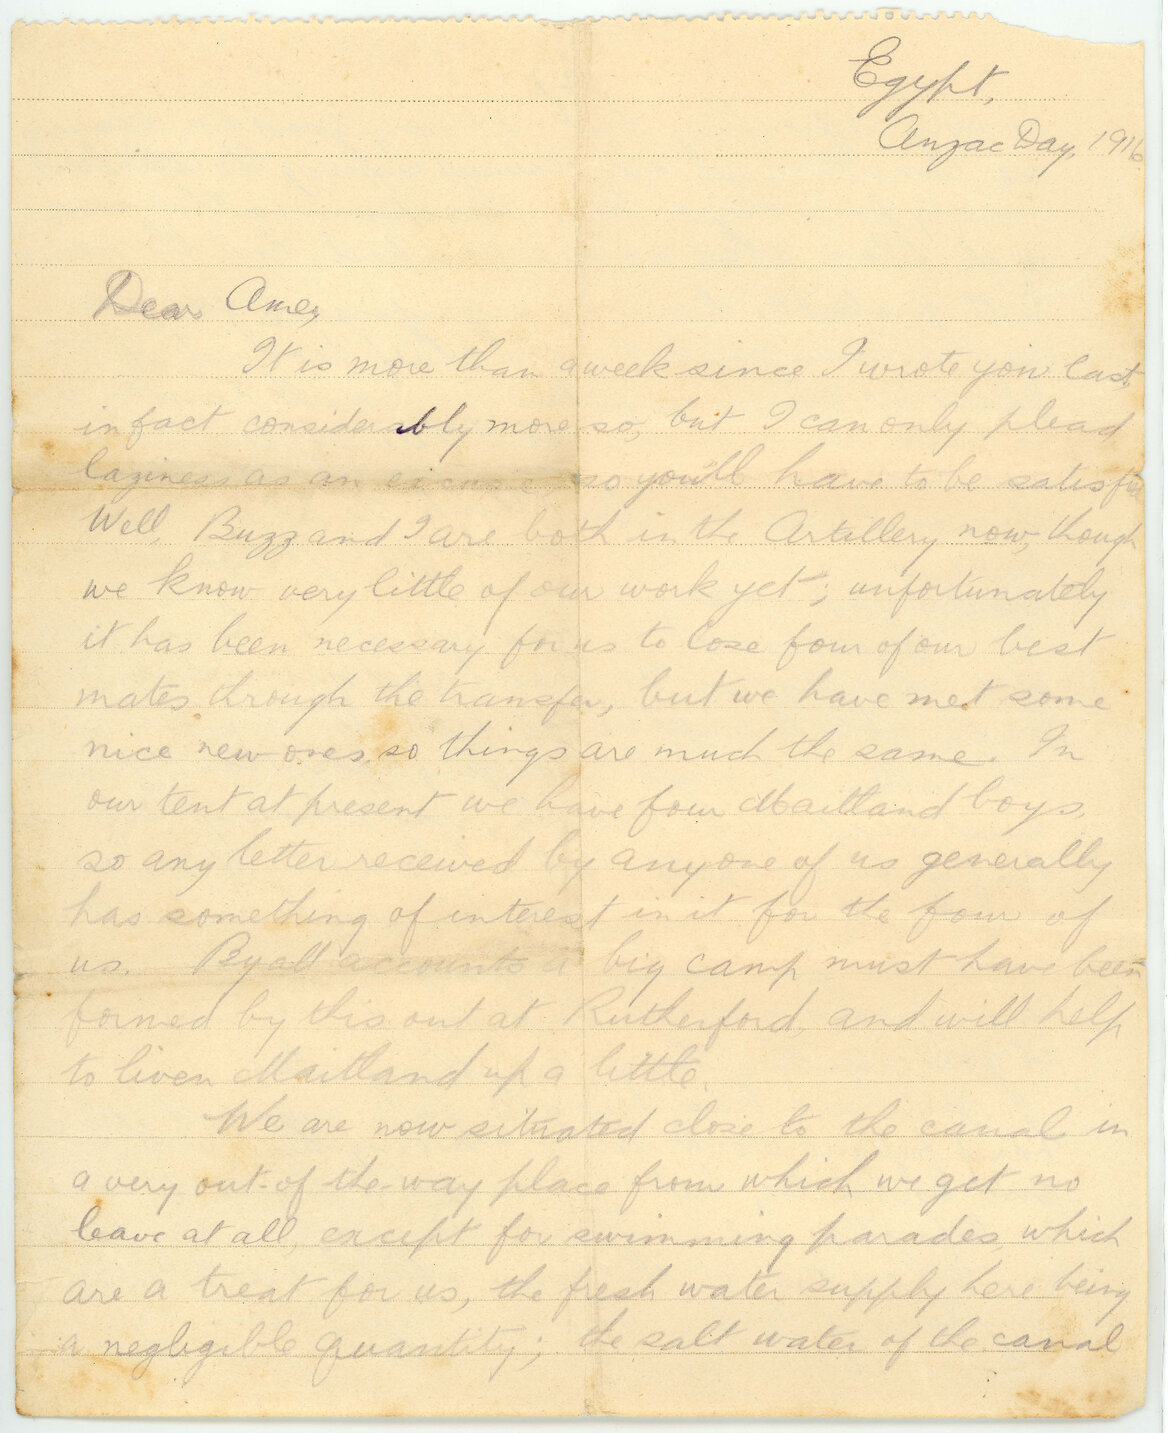 Egypt,
Anzac Day, 1916
Dear Amey,
It is more than a week since I wrote you last,
in fact considerably more so, but I can only plead
laziness as an excuse, so you'll have to be satisfied
Well, Buzz and I are both in the Artillery now, though
we know very little of our work yet; unfortunately
it has been necessary for us to lose four of our best
mates through the transfer, but we have met some
nice new ones, so things are much the same. In
our tent at present we have four Maitland boys,
so any letter received by anyone of us generally
has something of interest in it for the four of
us. By all accounts a big camp must have been
formed by this out at Rutherford, and will help
to liven Maitland up a little.
We are now situated close to the canal in
a very out-of-the-way place from which we get no
leave at all, except for swimming parades, which
are a treat for us, the fresh water supply here being
a negligible quantity; the salt water of the canal